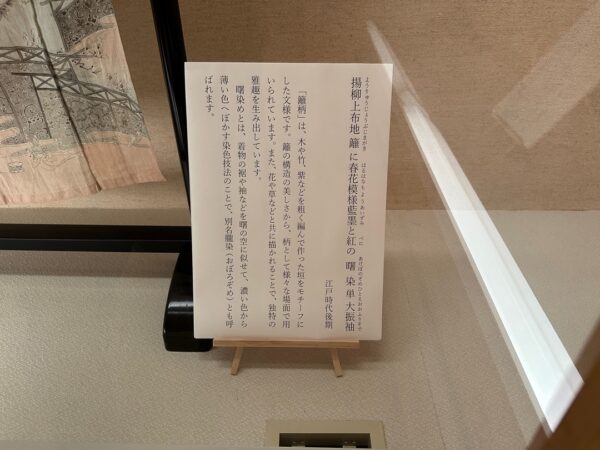 揚柳上布地 籬 に春花模様藍墨と紅の 曙 染 単 大振袖
江戸時代後期
「籬柄」は、木や竹、紫などを粗く編んで作った垣をモチーフに
した文様です。籬の構造の美しさから、柄として様々な場面で用
いられています。また、花や草などと共に描かれることで、独特の
雅趣を生み出しています。
曙染めとは、着物の裾や袖などを曙の空に似せて、濃い色から
薄い色へぼかす染色技法のことで、別名朧染(おぼろぞめ)とも呼
ばれます。